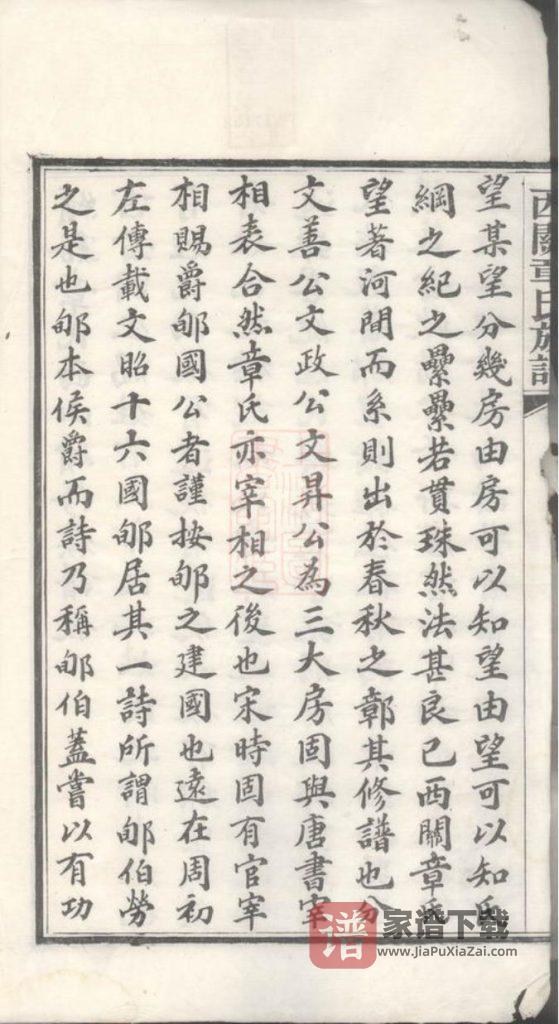 西關章氏族譜
望某望分幾房由房可以知望由望可以知氏
綱之紀之纍纍若貫珠然法甚良已西關章氏
望著河間而系則出於春秋之鄣其修譜也分
文善公文政公文昇公為三大房固與唐書宰
相表合然章氏亦宰相之後也宋時固有官宰
相賜爵郇國公者謹按郇之建國也遠在周初
左傳載文昭十六國郇居其一詩所謂郇伯勞
之是也郇本侯爵而詩乃稱郇伯蓋嘗以有功
譜 家谱下载
www.JiaPuXiaZai.com